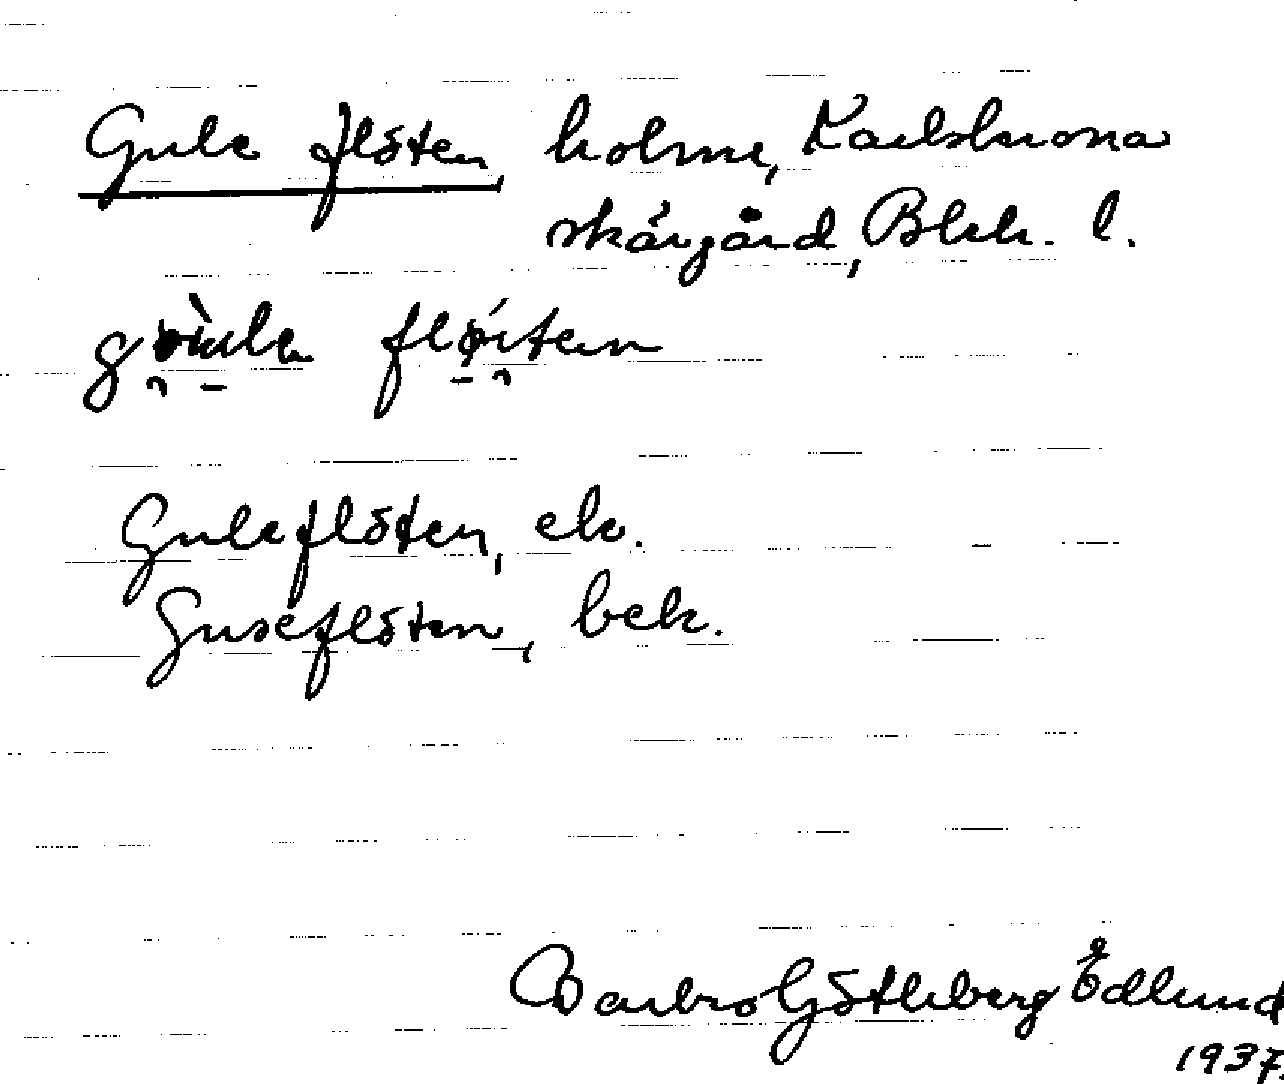 Gule flöten, holme, Karlskrona
skärgård, Blek. l.
flöiten
Guleflöten, ek.
Guseflöten, bek.
Barbro Götleberg Edlund
1937.